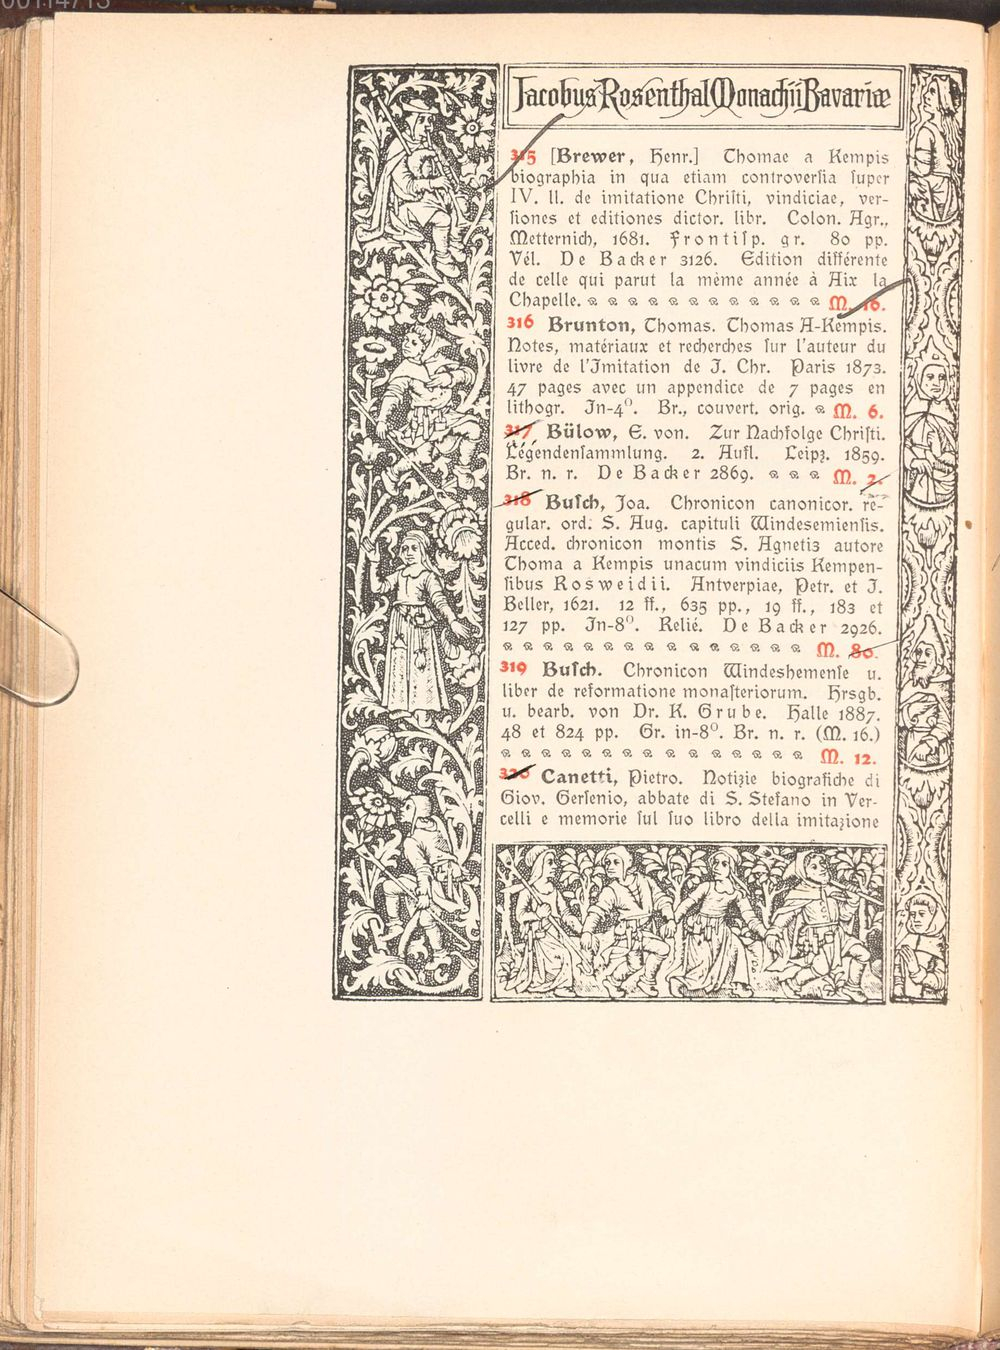 Jacobus Rosenthal Monachii Bavariæ
315 [Brewer, Henr.] Thomae a Kempis
biographia in qua etiam controverſia ſuper
IV. ll. de imitatione Chriſti, vindiciae, ver-
ſiones et editiones dictor. libr. Colon. Agr.,
Metternich, 1681. Frontiſp. gr. 80 pp.
Vél. De Backer 3126. Edition différente
de celle qui parut la même année à Aix la
Chapelle. M. 16.
316 Brunton, Thomas. Thomas A-Kempis.
Notes, matériaux et recherches ſur l'auteur du
livre de l'Imitation de J. Chr. Paris 1873.
47 pages avec un appendice de 7 pages en
lithogr. In-4⁰. Br., couvert. orig. M. 6.
317 Bülow, E. von. Zur Nachfolge Chriſti.
Legendenſammlung. 2. Aufl. Leipz. 1859.
Br. n. r. De Backer 2869. M. 2.
318 Buſch, Joa. Chronicon canonicor. re-
gular. ord. S. Aug. capituli Windesemienſis.
Acced. chronicon montis S. Agnetis autore
Thoma a Kempis unacum vindiciis Kempen-
ſibus Rosweidii. Antverpiae, Petr. et J.
Beller, 1621. 12 ff., 635 pp., 19 ff., 183 et
127 pp. In-8⁰. Relié. De Backer 2926.
M. 80.
319 Buſch. Chronicon Windeshemenſe u.
liber de reformatione monaſteriorum. Hrsgb.
u. bearb. von Dr. K. Grube. Halle 1887.
48 et 824 pp. Gr. in-8⁰. Br. n. r. (M. 16.)
M. 12.
320 Canetti, Pietro. Notizie biografiche di
Giov. Gerſenio, abbate di S. Stefano in Ver-
celli e memorie ſul ſuo libro della imitazione